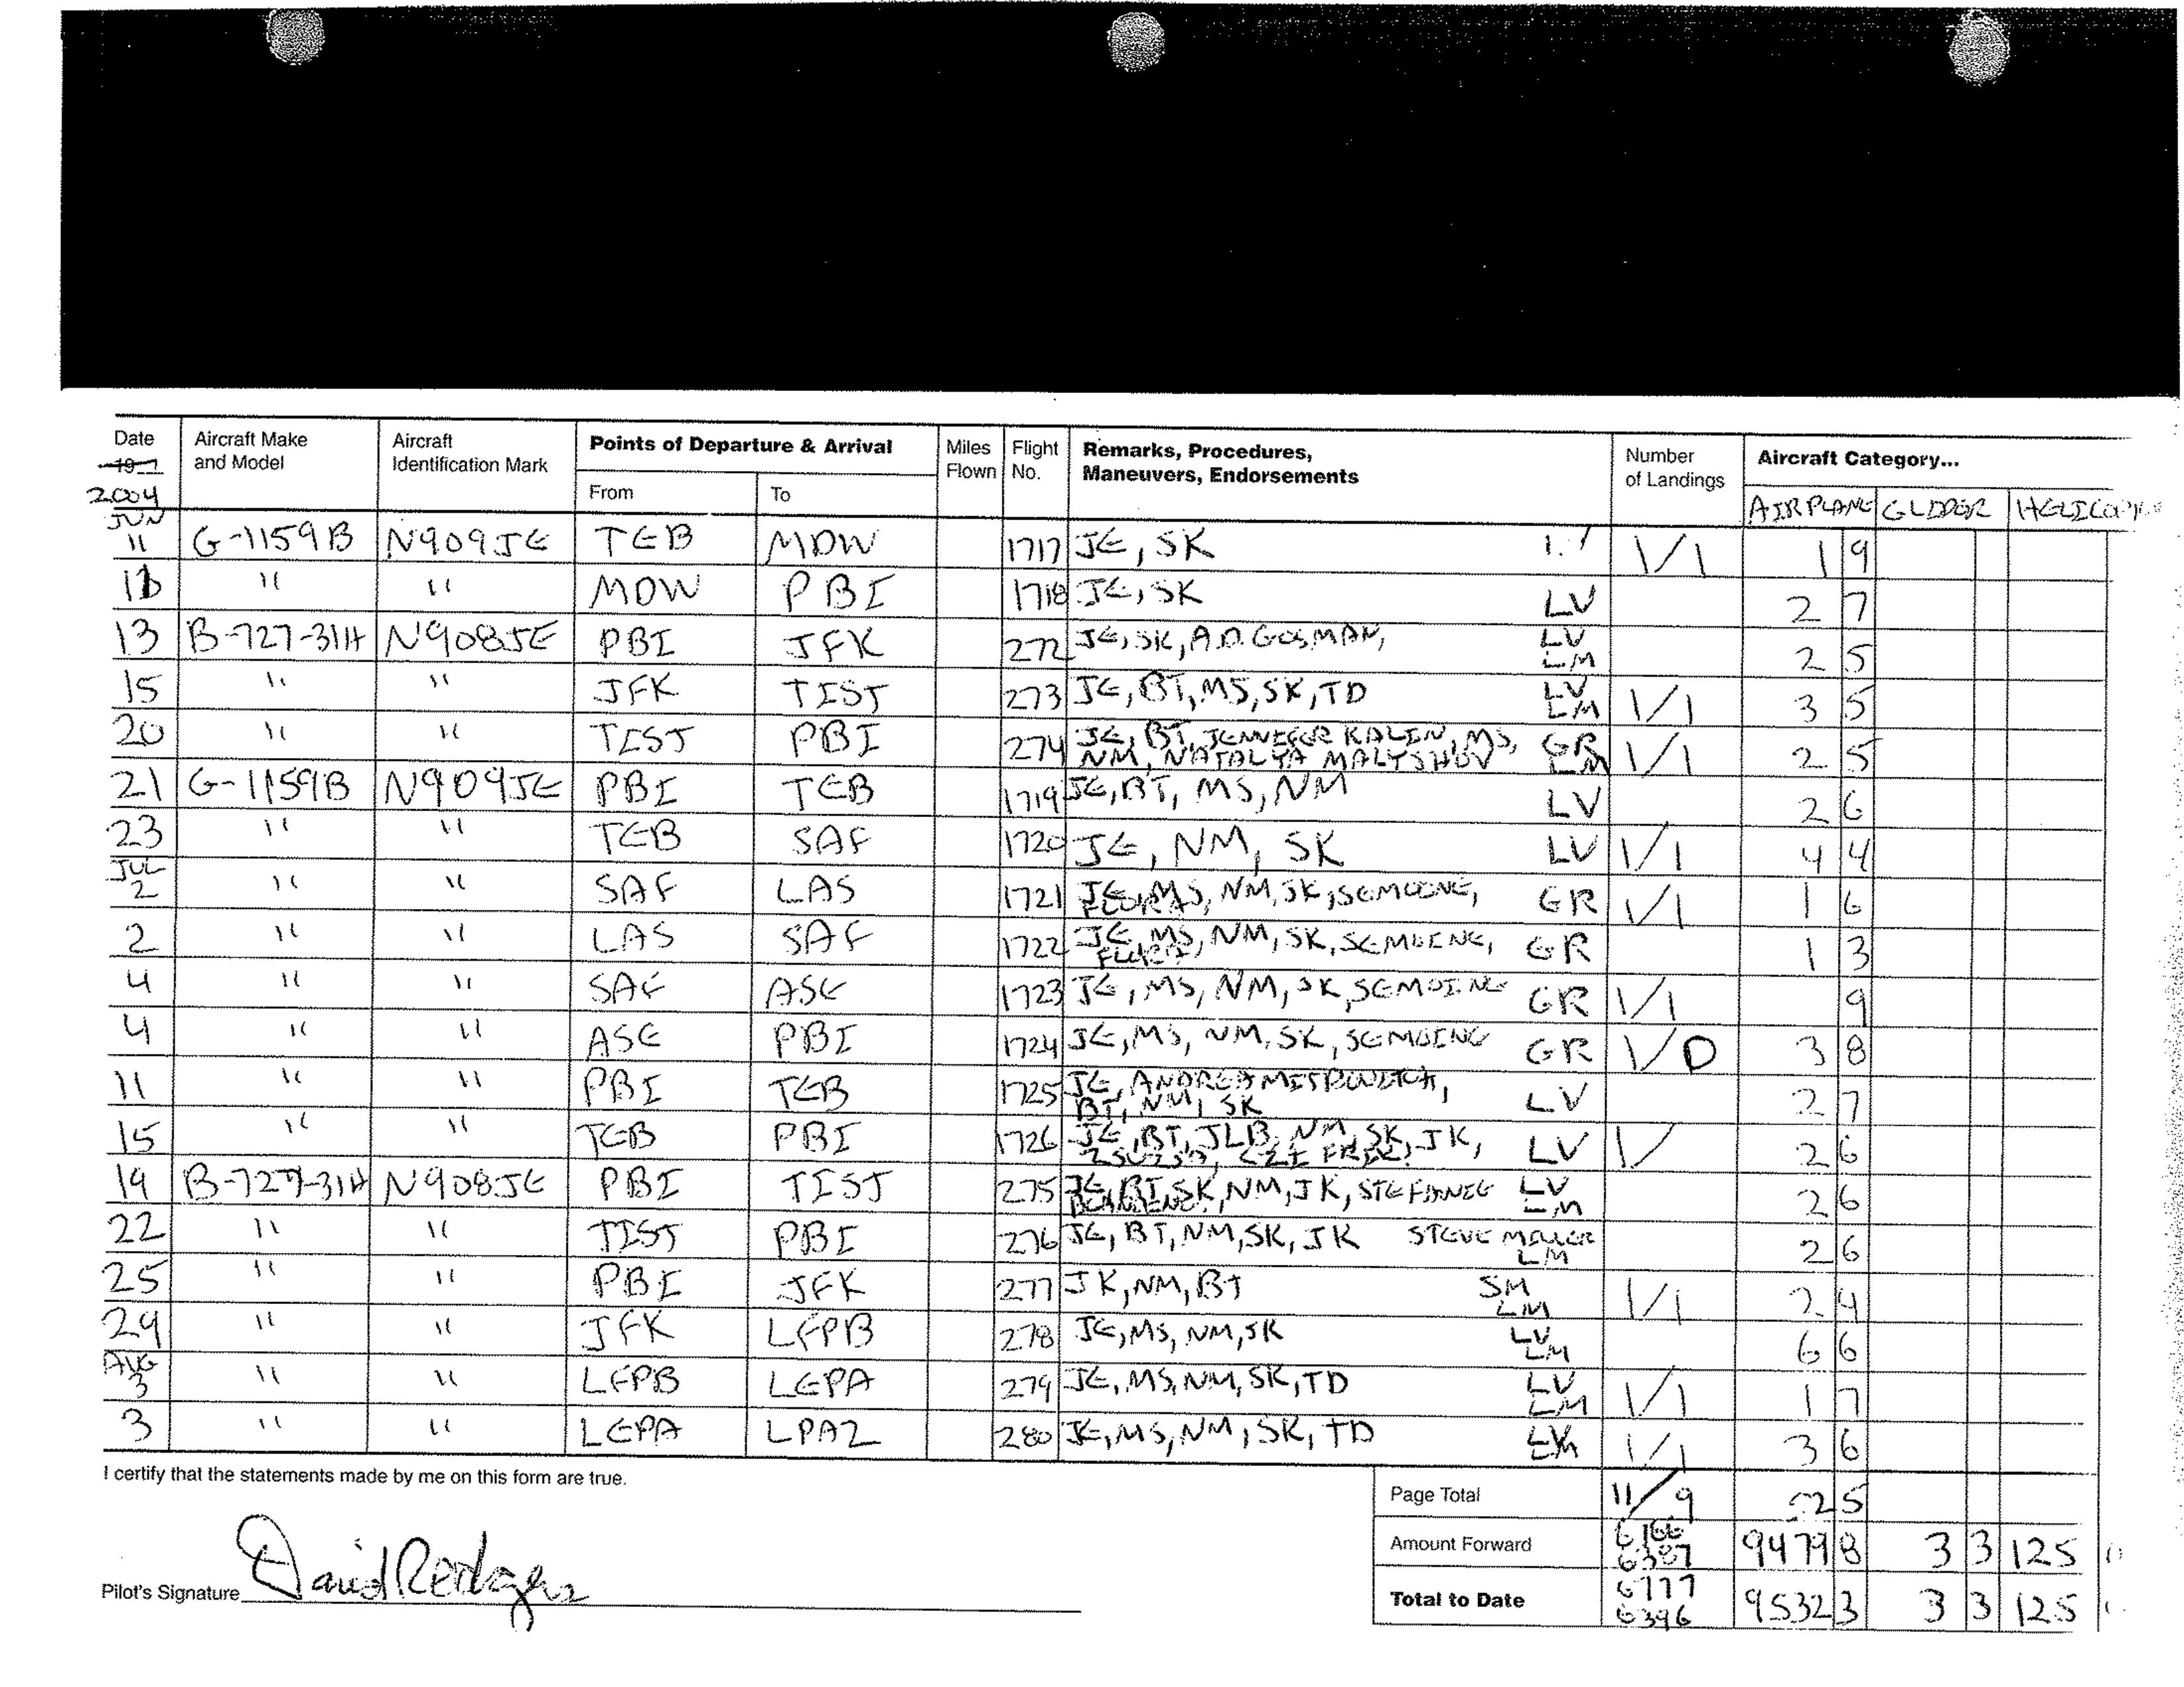 Date Aircraft Make and Model Aircraft Identification Mark Points of Departure & Arrival Miles Flown Flight No. Remarks, Procedures, Maneuvers, Endorsements Number of Landings Aircraft Category...
19
2004 From To AIRPLANE GLIDER
JUN 11 G-1159B N909JE TEB MDW 1717 JE, SK 1/1 1 9
" " MDW PBI 1718 JE, SK LV 2 7
13 B-727-31H N908JE PBI JFK 272 JE, SK, LV LM 2 5
15 " " JFK TIST 273 JE, BT, MS, SK, TD LV LM 1/1 3 5
20 " " TIST PBI 274 JE, BT, JENNIFER KALIN, MS, NM, NATALYA MALYSHOV GR LM 1/1 2 5
21 G-1159B N909JE PBI TEB 1719 JE, BT, MS, NM LV 2 6
23 " " TEB SAF 1720 JE, NM, SK LV 1/1 4 4
JUL 2 " " SAF LAS 1721 JE, MS, NM, SK, GR 1/1 1 6
2 " " LAS SAF 1722 JE, MS, NM, SK, GR 1 3
4 " " SAF ASE 1723 JE, MS, NM, SK, GR 1/1 9
4 " " ASE PBI 1724 JE, MS, NM, SK, GR 1/0 3 8
11 " " PBI TEB 1725 JE, BT, NM, SK LV 2 7
15 " " TEB PBI 1726 JE, BT, JLB, NM, SK, JK, LV 1/ 2 6
19 B-727-31H N908JE PBI TIST 275 JE, BT, SK, NM, JK, STEFANIE LV LM 2 6
22 " " TIST PBI 276 JE, BT, NM, SK, JK STEVE LM 2 6
25 " " PBI JFK 277 JK, NM, BT SM LM 1/1 2 4
29 " " JFK LFPB 278 JE, MS, NM, SK LV LM 6 6
AUG 3 " " LFPB LEPA 279 JE, MS, NM, SK, TD LV LM 1/1 1 7
3 " " LEPA LPAZ 280 JE, MS, NM, SK, TD 1/1 3 6
I certify that the statements made by me on this form are true.
Page Total 11/9 5
Amount Forward 6387 9479 8 3 3 125
Pilot's Signature David Rodgers
Total to Date 6396 9532 3 3 3 125